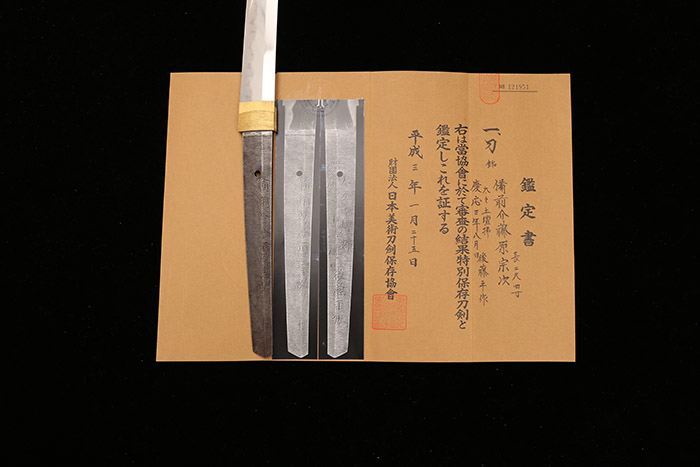 № 121951
鑑定書
一、刀 銘
備前介藤原宗次
慶応
年八月
後藤
作
長二尺
右は當協會に於て審査の結果特別保存刀剣と
鑑定しこれを証する
平成三年一月二十五日
財団法人日本美術刀剣保存協會